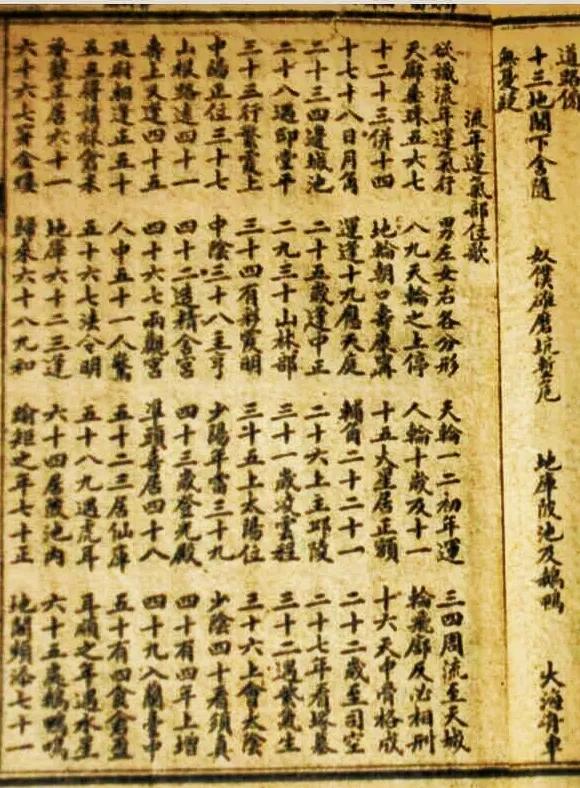 道路傍
十三地閣下舍隨　奴僕碓磨坑塹厄　地庫陂池及鵝鴨　大海舟車
無憂疑
流年運氣部位歌
欲識流年運氣行　男左女右各分形　天輪一二初年運　三四周流至天城
天廓垂珠五六七　八九天輪之上停　人輪十歲及十一　輪飛廓反必相刑
十二十三併十四　地輪朝口壽康寧　十五火星居正額　十六天中骨格成
十七十八日月角　運逢十九應天庭　輔角二十二十一　二十二歲至司空
二十三四邊城池　二十五歲逢中正　二十六上主邱陵　二十七年看塚墓
二十八遇印堂平　二九三十山林部　三十一歲凌雲程　三十二遇紫氣生
三十三行繁霞上　三十四有彩霞明　三十五上太陽位　三十六上會太陰
中陽正位三十七　中陰三十八主亨　少陽年當三十九　少陰四十看須真
山根路遠四十一　四十二造精舍宮　四十三歲登光殿　四十有四年上增
壽上又逢四十五　四十六七兩觀宮　準頭喜居四十八　四十九入蘭臺中
廷尉相逢正五十　人中五十一人驚　五十二三居仙庫　五十有四食倉盈
五五得請祿倉米　五十六七法令明　五十八九遇虎耳　耳順之年遇水星
承漿正居六十一　地庫六十二三逢　六十四居陂池內　六十五處鵝鴨鳴
六十六七穿金縷　歸來六十八九和　踰矩之年七十正　地閣頦洛七十一